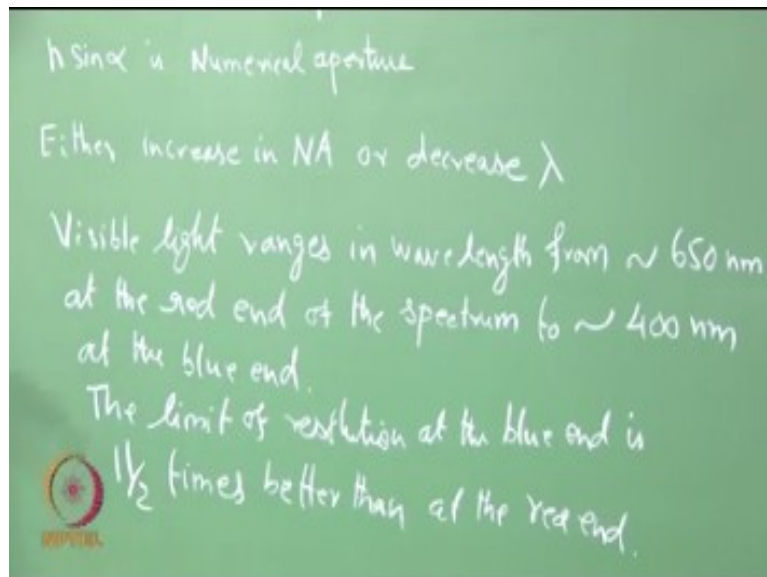 n sinα is Numerical aperture
Either increase in NA or decrease λ
Visible light ranges in wavelength from ~ 650 nm
at the red end of the spectrum to ~ 400 nm
at the blue end.
The limit of resolution at the blue end is
1 1/2 times better than at the red end.
NPTEL